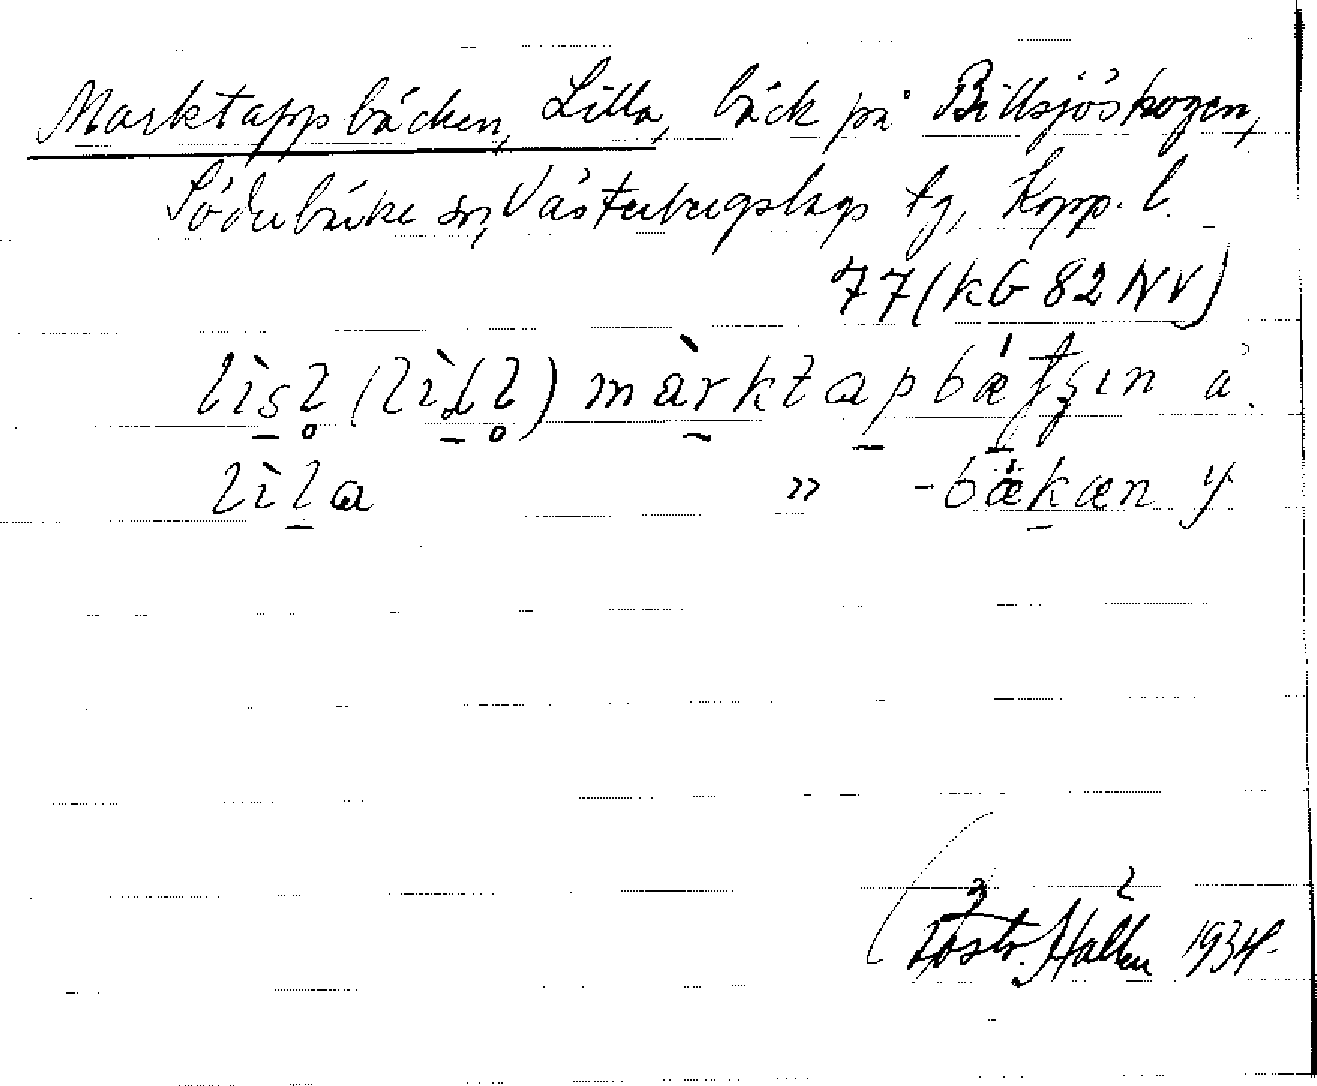 Marktappbäcken, Lilla, bäck på Billsjöskogen,
Söderbärke sn, Västerbergslags tg, Kopp. l.
77 (kb 82 NV)
lìsl̥ (lìdl̥) màrktapbæʈʂın ä.
lìla » -bækæn y.
3 2
Tostr. Hallén 1934